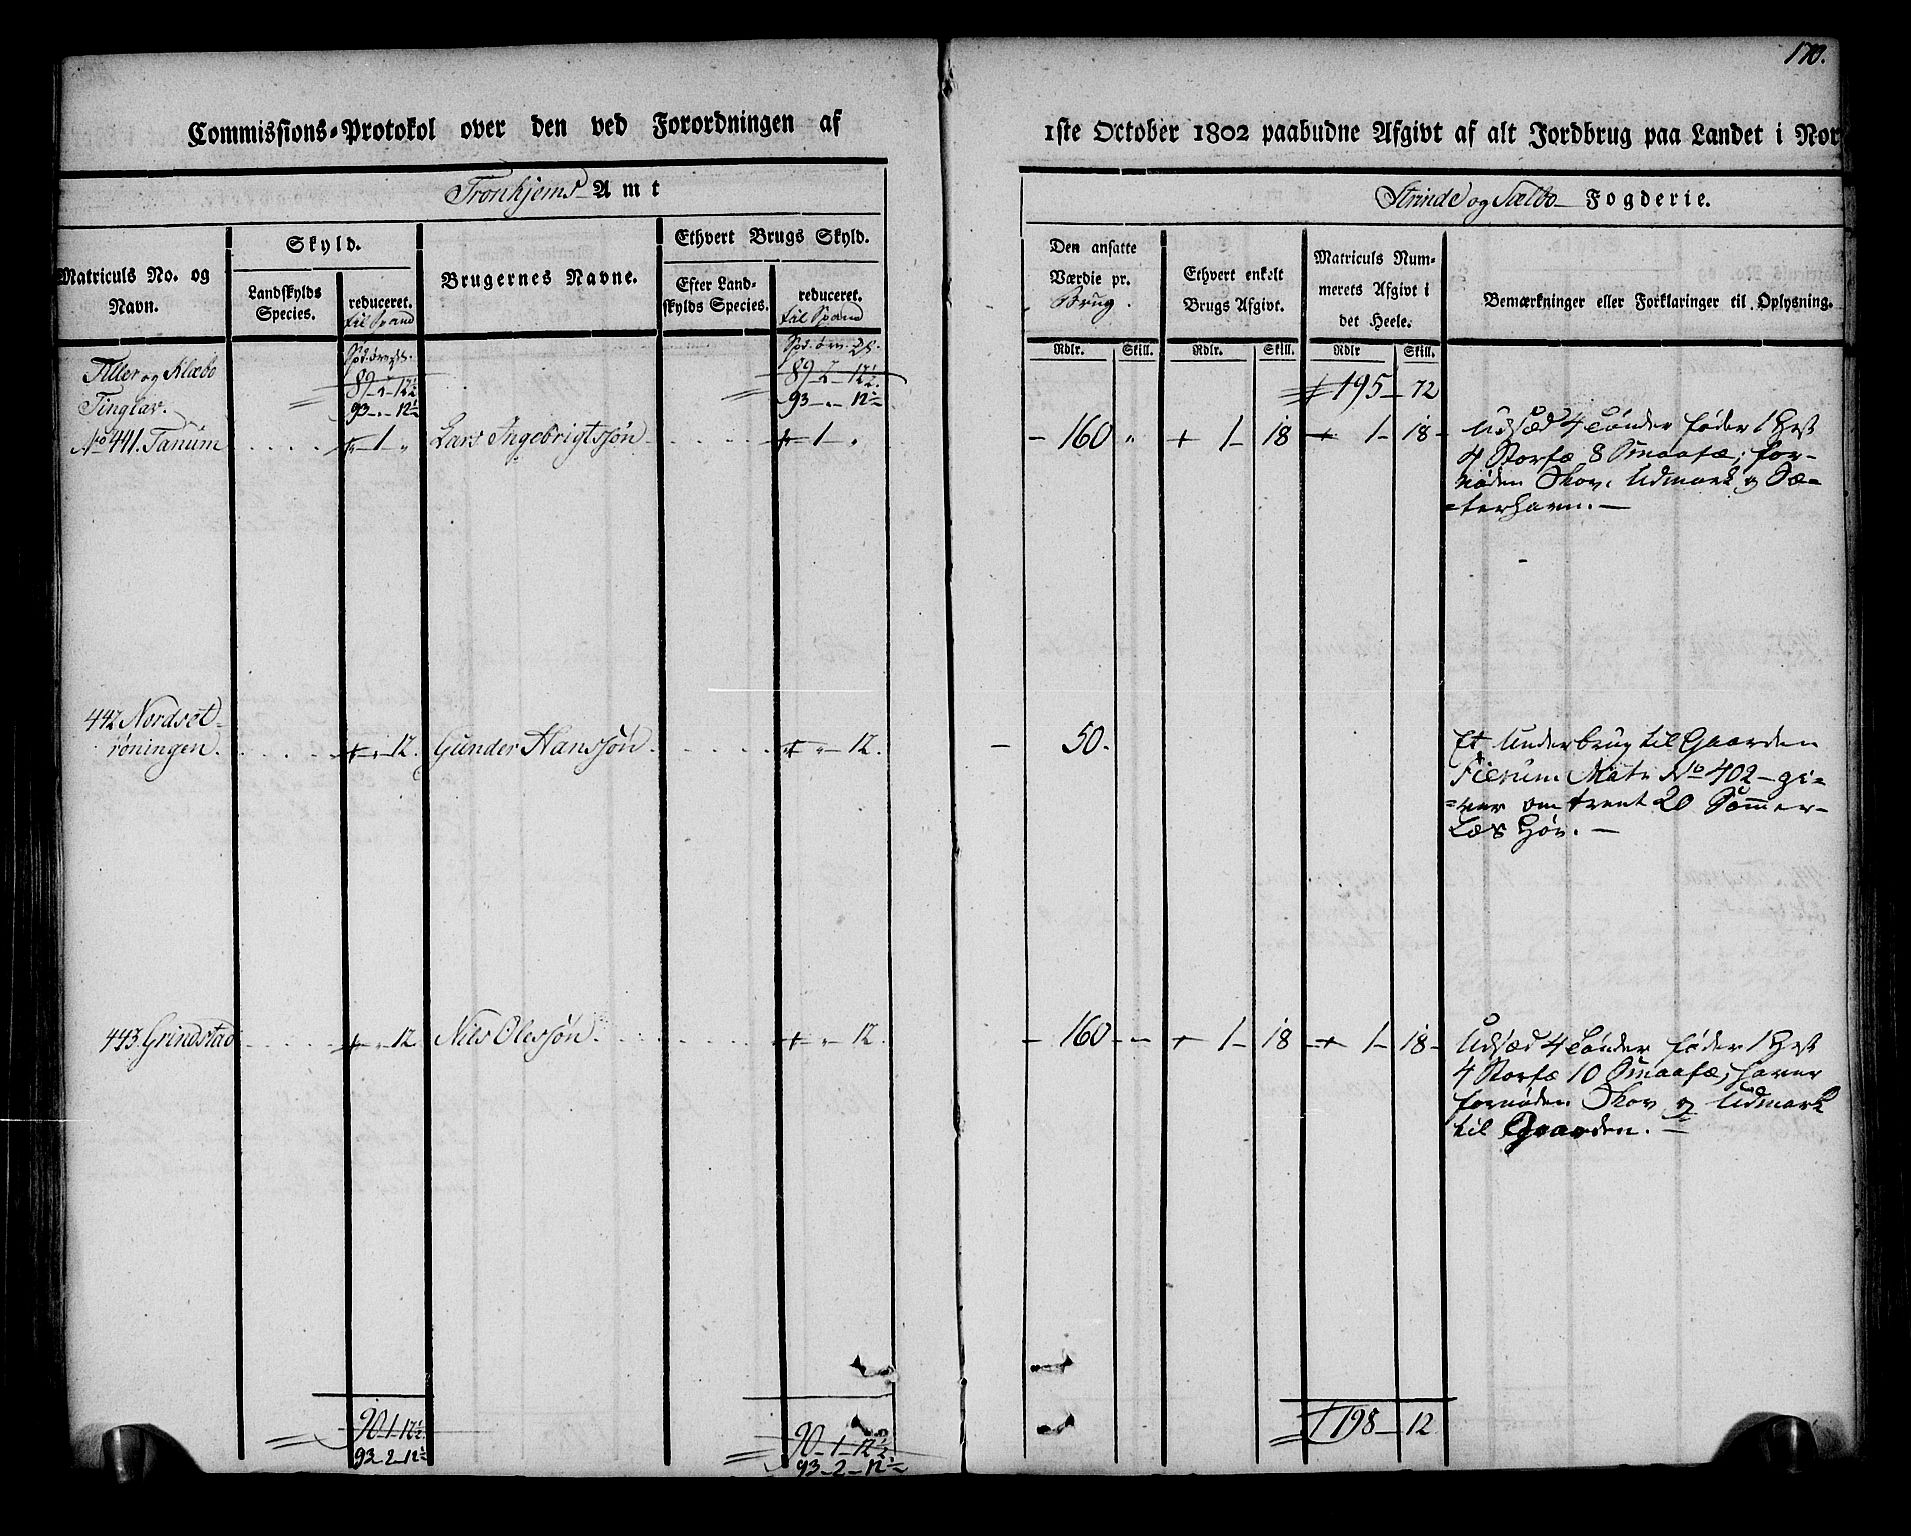 170.
Commissions-Protokol over den ved Forordningen af 1ste October 1802 paabudne Afgivt af alt Jordbrug paa Landet i Nor
Tronhjems Amt
Strinde og Sælbo Fogderie.
Matriculs No. og Navn.
Skyld.
Landskylds Species.
reduceret. til Spand
Brugernes Navne.
Ethvert Brugs Skyld.
Efter Landskylds Species.
reduceret. til Spand
Den ansatte Værdie pr. Brug.
Ethvert enkelt Brugs Afgivt.
Matriculs Nummerets Afgivt i det Heele.
Bemærkninger eller Forklaringer til Oplysning.
Rdlr. Skill. Rdlr. Skill. Rdlr Skill.
Tiller og Klæbo
Tinglav.
89 - 2 - 12½ 89 - 2 - 12½. 195 - 72
93 - „ - 12½ 93 - „ - 12½
No 441. Tanum + 1 „ Lars Ingebrigtssøn + 1 - „ - 160 „ + 1 - 18 + 1 - 18
Udsæd 4 Tønder føder 1 Hest
4 Storfæ 8 Smaafæ; for-
nøden Skov, Udmark og Sæ-
=terhavn. —
442 Nordset-
røningen. + „ 12. Gunder Hanssøn + „ - 12. - 50.
Et Underbrug til Gaarden
Fierum Matr No 402 - gi-
=ver om trent 20 Sommer-
Læs Høe. —
443 Grindstad + „ 12 Nils Olessøn + „ - 12. - 160 - + 1 - 18 + 1 - 18
Udsæd 4 Tønder føder 1 Hest
4 Storfæ 10 Smaafæ; haver
fornøden Skov og Udmark
til Gaarden. —
90 - 1 - 12½ 90 - 1 - 12½ 198 - 12
93 - 2 - 12½ 93 - 2 - 12½